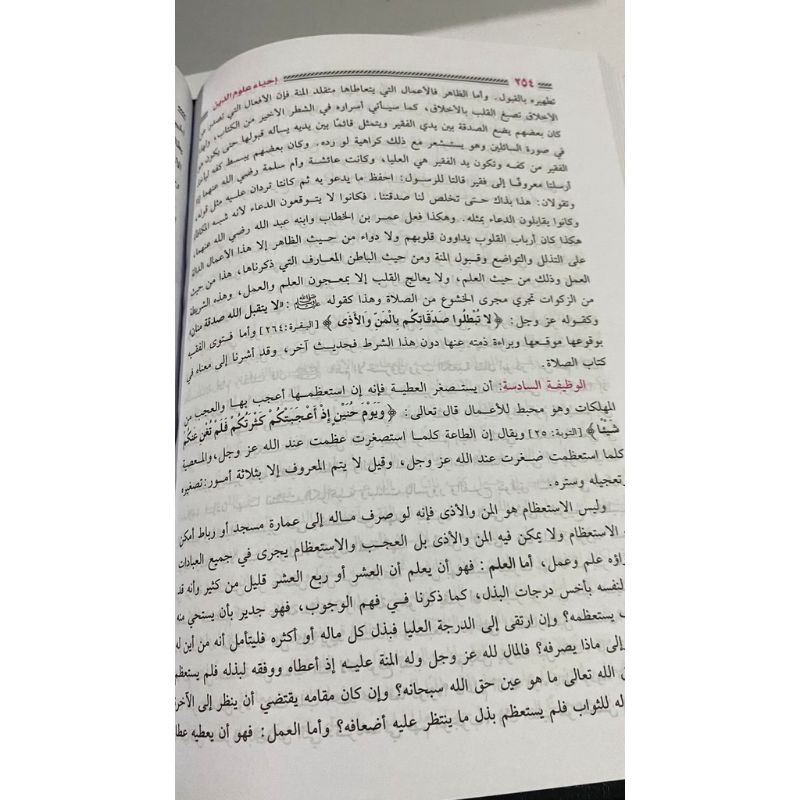 ٢٥٤ إحياء علوم الدين
تطهيره بالقبول. وأما الظاهر فالأعمال التي يتعاطاها متقلد المنة فإن الأفعال التي تصدر عن
الأخلاق تصبغ القلب بالأخلاق، كما سيأتي أسراره في الشطر الأخير من الكتاب، ولهذا
كان بعضهم يضع الصدقة بين يدي الفقير ويتمثل قائمًا بين يديه يسأله قبولها حتى يكون هو
في صورة السائلين وهو يستشعر مع ذلك كراهية لو رده. وكان بعضهم يبسط كفه ليأخذ
الفقير من كفه وتكون يد الفقير هي العليا، وكانت عائشة وأم سلمة رضي الله عنهما إذا
أرسلتا معروفًا إلى فقير قالتا للرسول: احفظ ما يدعو به ثم كانتا تردان عليه مثل قوله
وتقولان: هذا بذاك حتى تخلص لنا صدقتنا. فكانوا لا يتوقعون الدعاء لأنه شبه المكافأة
وكانوا يقابلون الدعاء بمثله. وهكذا فعل عمر بن الخطاب وابنه عبد الله رضي الله عنهما،
هكذا كان أرباب القلوب يداوون قلوبهم ولا دواء من حيث الظاهر إلا هذا الأعمال الدالة
على التذلل والتواضع وقبول المنة ومن حيث الباطن المعارف التي ذكرناها، هذا من حيث
العمل وذلك من حيث العلم، ولا يعالج القلب إلا بمعجون العلم والعمل، وهذه الشريطة
من الزكوات تجري مجرى الخشوع من الصلاة وهذا كقوله ﷺ: «لا يتقبل الله صدقة منان»
وكقوله عز وجل: ﴿لَا تُبْطِلُوا صَدَقَاتِكُم بِالْمَنِّ وَالْأَذَى﴾ [البقرة: ٢٦٤] وأما فتوى الفقيه
بوقوعها موقعها وبراءة ذمته عنها دون هذا الشرط فحديث آخر، وقد أشرنا إلى معناه في
كتاب الصلاة.
الوظيفة السادسة: أن يستصغر العطية فإنه إن استعظمها أعجب بها والعجب من
المهلكات وهو محبط للأعمال قال تعالى: ﴿وَيَوْمَ حُنَيْنٍ إِذْ أَعْجَبَتْكُمْ كَثْرَتُكُمْ فَلَمْ تُغْنِ عَنكُمْ
شَيْئًا﴾ [التوبة: ٢٥] ويقال إن الطاعة كلما استصغرت عظمت عند الله عز وجل، والمعصية
كلما استعظمت صغرت عند الله عز وجل، وقيل لا يتم المعروف إلا بثلاثة أمور: تصغيره
وتعجيله وستره.
وليس الاستعظام هو المن والأذى فإنه لو صرف ماله إلى عمارة مسجد أو رباط أمكن
الاستعظام ولا يمكن فيه المن والأذى بل العجب والاستعظام يجرى في جميع العبادات
علم وعمل، أما العلم: فهو أن يعلم أن العشر أو ربع العشر قليل من كثير وأنه قد
لنفسه بأخس درجات البذل، كما ذكرنا في فهم الوجوب، فهو جدير بأن يستحي منه
يستعظمه؟ وإن ارتقى إلى الدرجة العليا فبذل كل ماله أو أكثره فليتأمل أنه من أين له
إلى ماذا يصرفه؟ فالمال لله عز وجل وله المنة عليه إذ أعطاه ووفقه لبذله فلم يستعظم
الله تعالى ما هو عين حق الله سبحانه؟ وإن كان مقامه يقتضي أن ينظر إلى الآخرة
له للثواب فلم يستعظم بذل ما ينتظر عليه أضعافه؟ وأما العمل: فهو أن يعطيه عطاء